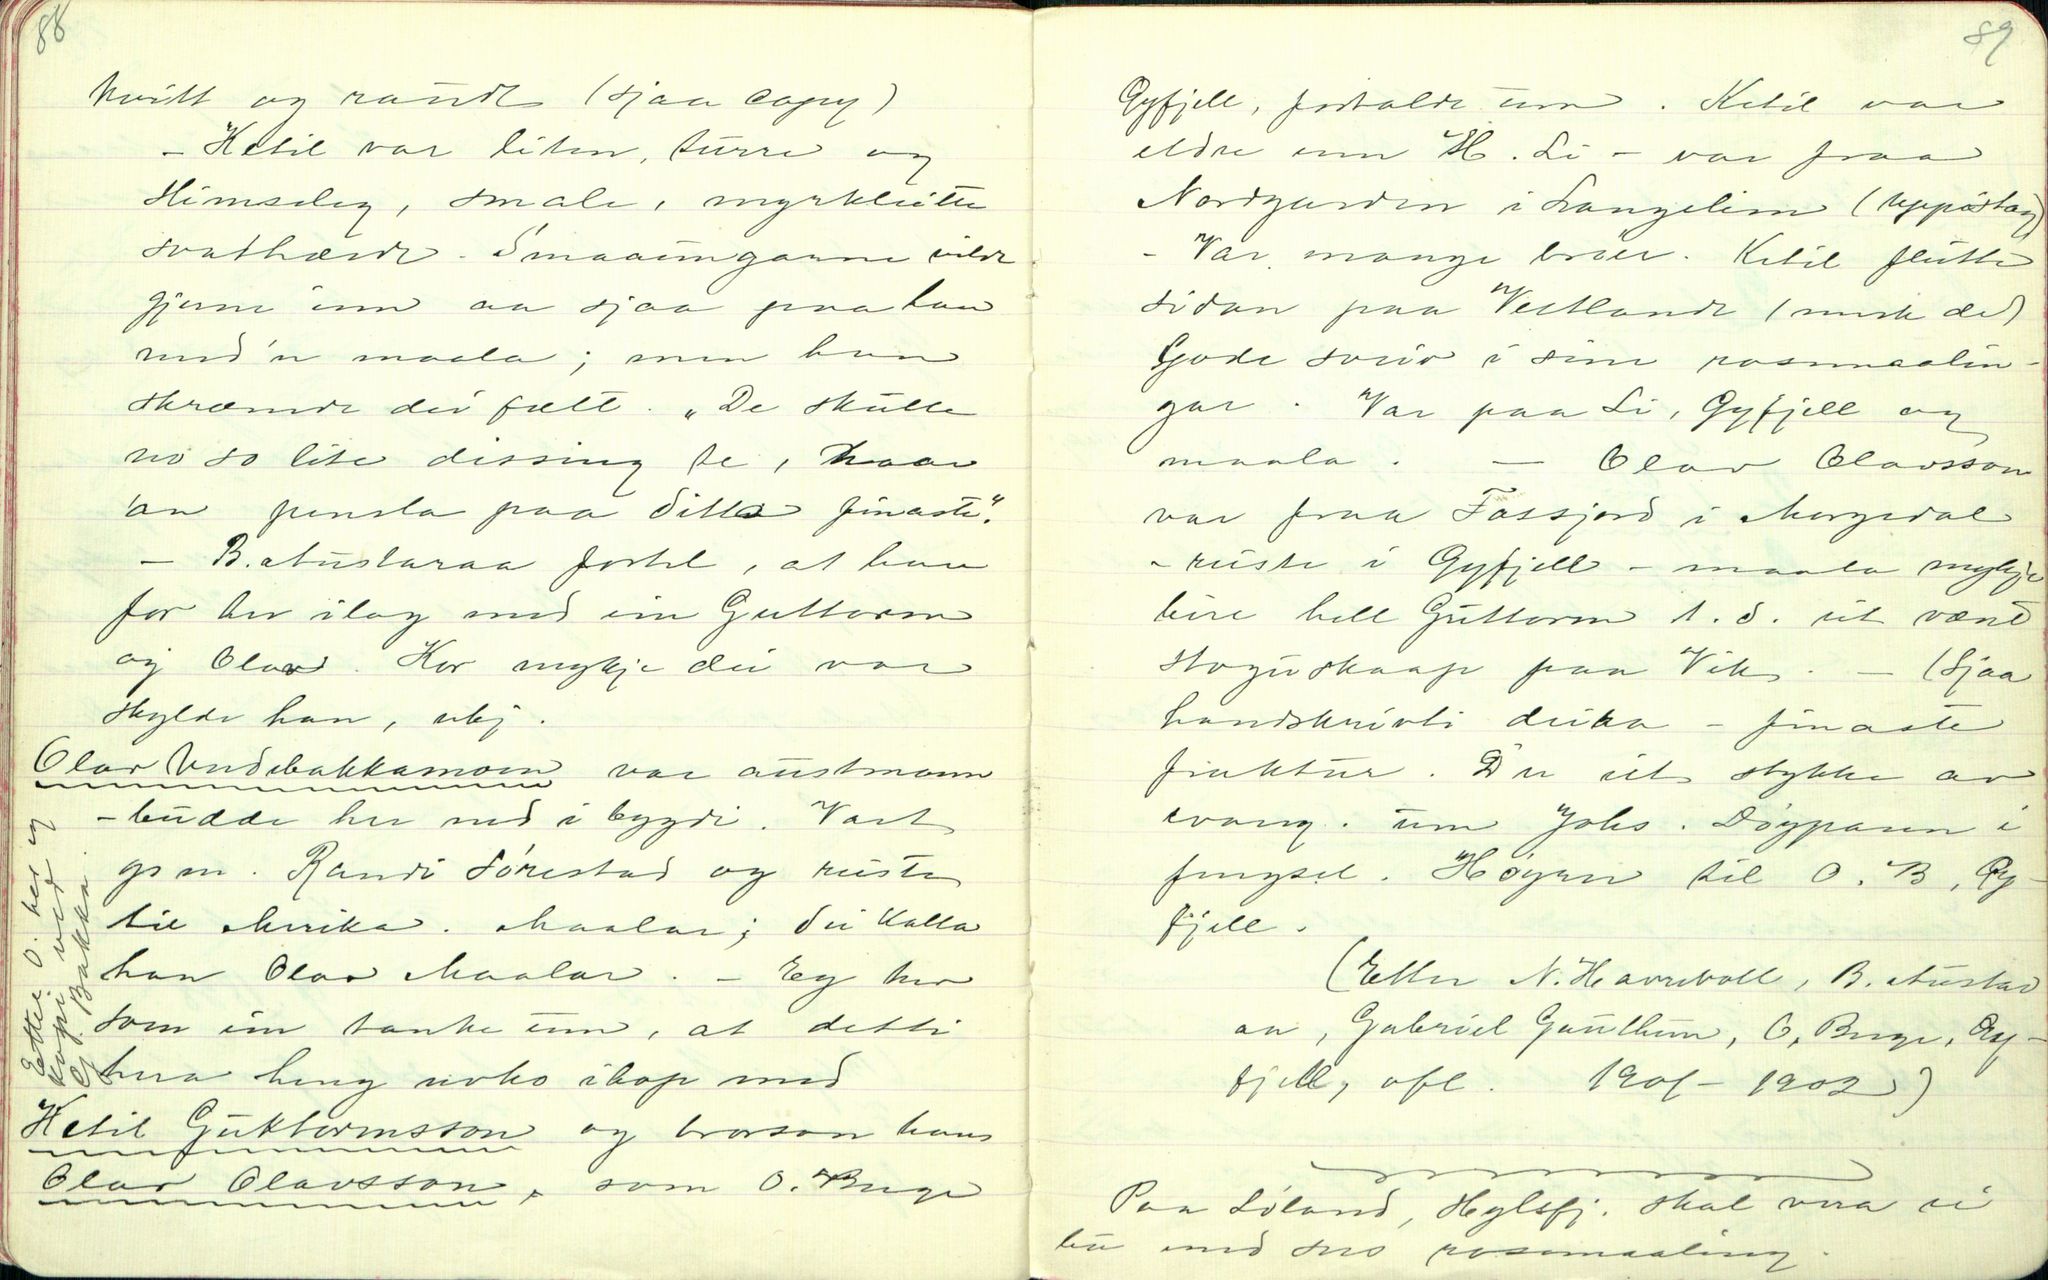 88
kvitt og raudt (sjaa copy)
- Ketil var liten, turre og
skimsleg, smale, myrkleitte
svarthærde. Smaaungarne vilde
gjerne inn aa sjaa paa han
med'n maala; men han
skræmde dei fælt. "De skulle
no so lite dissing te, naar
'an pensla paa ditta finaste".
- B. Austaraa fortel, at han
for her ilag med ein Guttorm
og Olav. Kor mykje dei var
skylde han, ukj.
Olav Undebakkamoen var austmann
- budde her ned i bygdi. Vart
gm. Randi Sørestad og reiste
til Amerika. Maalar; dei kalla
han Olav Maalar. - Eg her
som ein tanke um, at detti
hera heng noko ihop med
Ketil Guttormsson og brorson hans
Olav Olavsson, som O. Buge
Etter O. her eg
kopi ved
G. Bakka.
89
Gyfjell, fortalde um. Ketil var
eldre enn H. Li - var fraa
Nordgarden i Langelim (uppdikta)
- Var mange brør. Ketil flutte
sidan paa Vestlande (merk de)
Gode sveiv i sine rosemaalin-
gar. Var paa Li, Gyfjell og
maala. - Olav Olavsson
var fraa Fossjord i Morgedal
- reiste i Gyfjell - maala mykje
beire hell Guttorm t.d. eit vænt
stoguskaap paa Vik. - (Sjaa
handskrivti deira - finaste
fraktur. Du eit stykke av
evang. um Johs. Døyparen i
fengsel. Høyrer til O. B. Gy-
fjell.
(Etter N. Havrevoll, B. Austar
aa, Gabriel Gauthun, O. Buge, Gy-
fjell, ofl. 1901-1902)
Paa Løland, Hylsfj. skal vera ei
bu med sno rosemaaling.